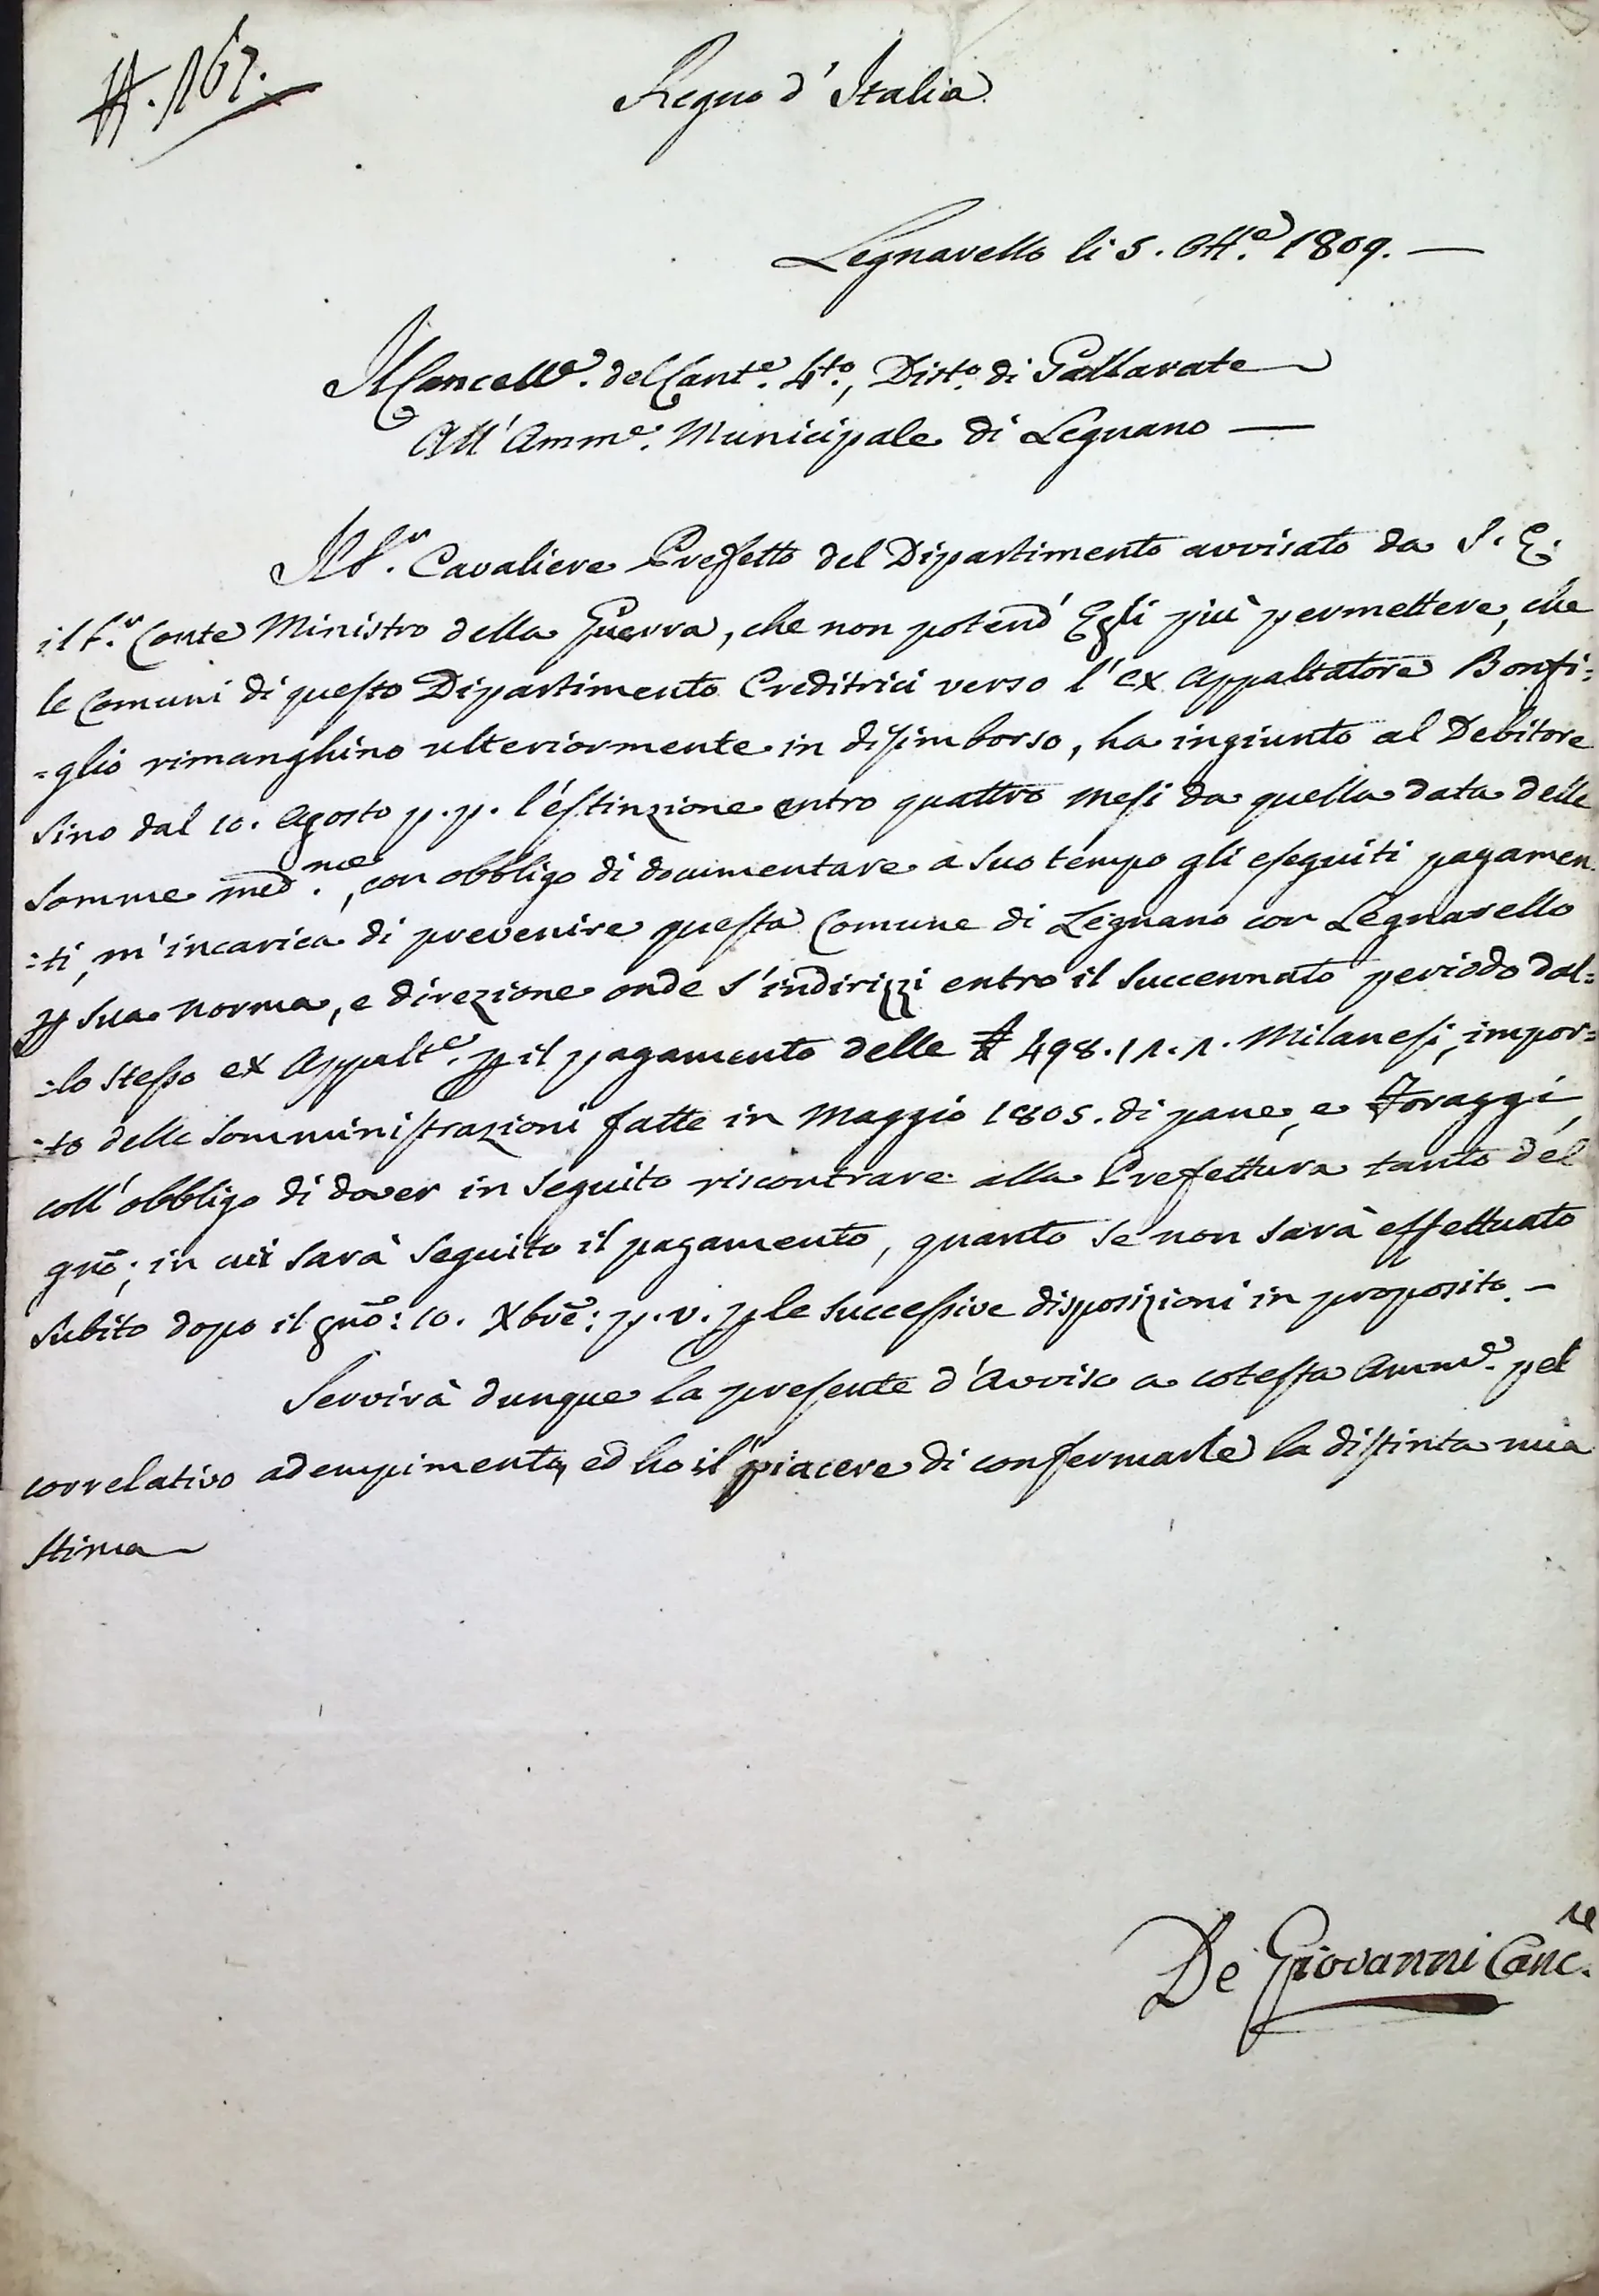 #. 167.
Regno d'Italia
Legnarello li 5. Ott.e 1809. —
Il Cancell.e del Cant.e 4.to, Dist.o di Gallarate
All'Amm.e Municipale di Legnano —
Il S.r Cavaliere Prefetto del Dipartimento avvisato da S. E.
il S.r Conte Ministro della Guerra, che non potend' Egli più permettere, che
le Comuni di questo Dipartimento Creditrici verso l'ex Appaltatore Bonfi=
=glio rimanghino ulteriormente in disimborso, ha ingiunto al Debitore
sino dal 10. Agosto p.p. l'estinzione entro quattro mesi da quella data delle
somme med.me, con obbligo di documentare a suo tempo gli eseguiti pagamen
:ti, m'incarica di prevenire questa Comune di Legnano con Legnarello
p sua norma, e direzione onde s'indirizzi entro il succennato periodo dal=
:lo stesso ex Appalt.e p il pagamento delle £ 498.11.1. Milanesi, impor=
:to delle somministrazioni fatte in Maggio 1805. di pane, e Foraggi,
coll'obbligo di dover in seguito riscontrare alla Prefettura tanto del
gno; in cui sarà seguito il pagamento, quanto se non sarà effettuato
subito dopo il gno: 10. Xbre: p.v. p le successive disposizioni in proposito. —
Servirà dunque la presente d'Avviso a cotesta Amm.e pel
correlativo adempimento, ed ho il piacere di confermarle la distinta mia
stima
De Giovanni Canc.re